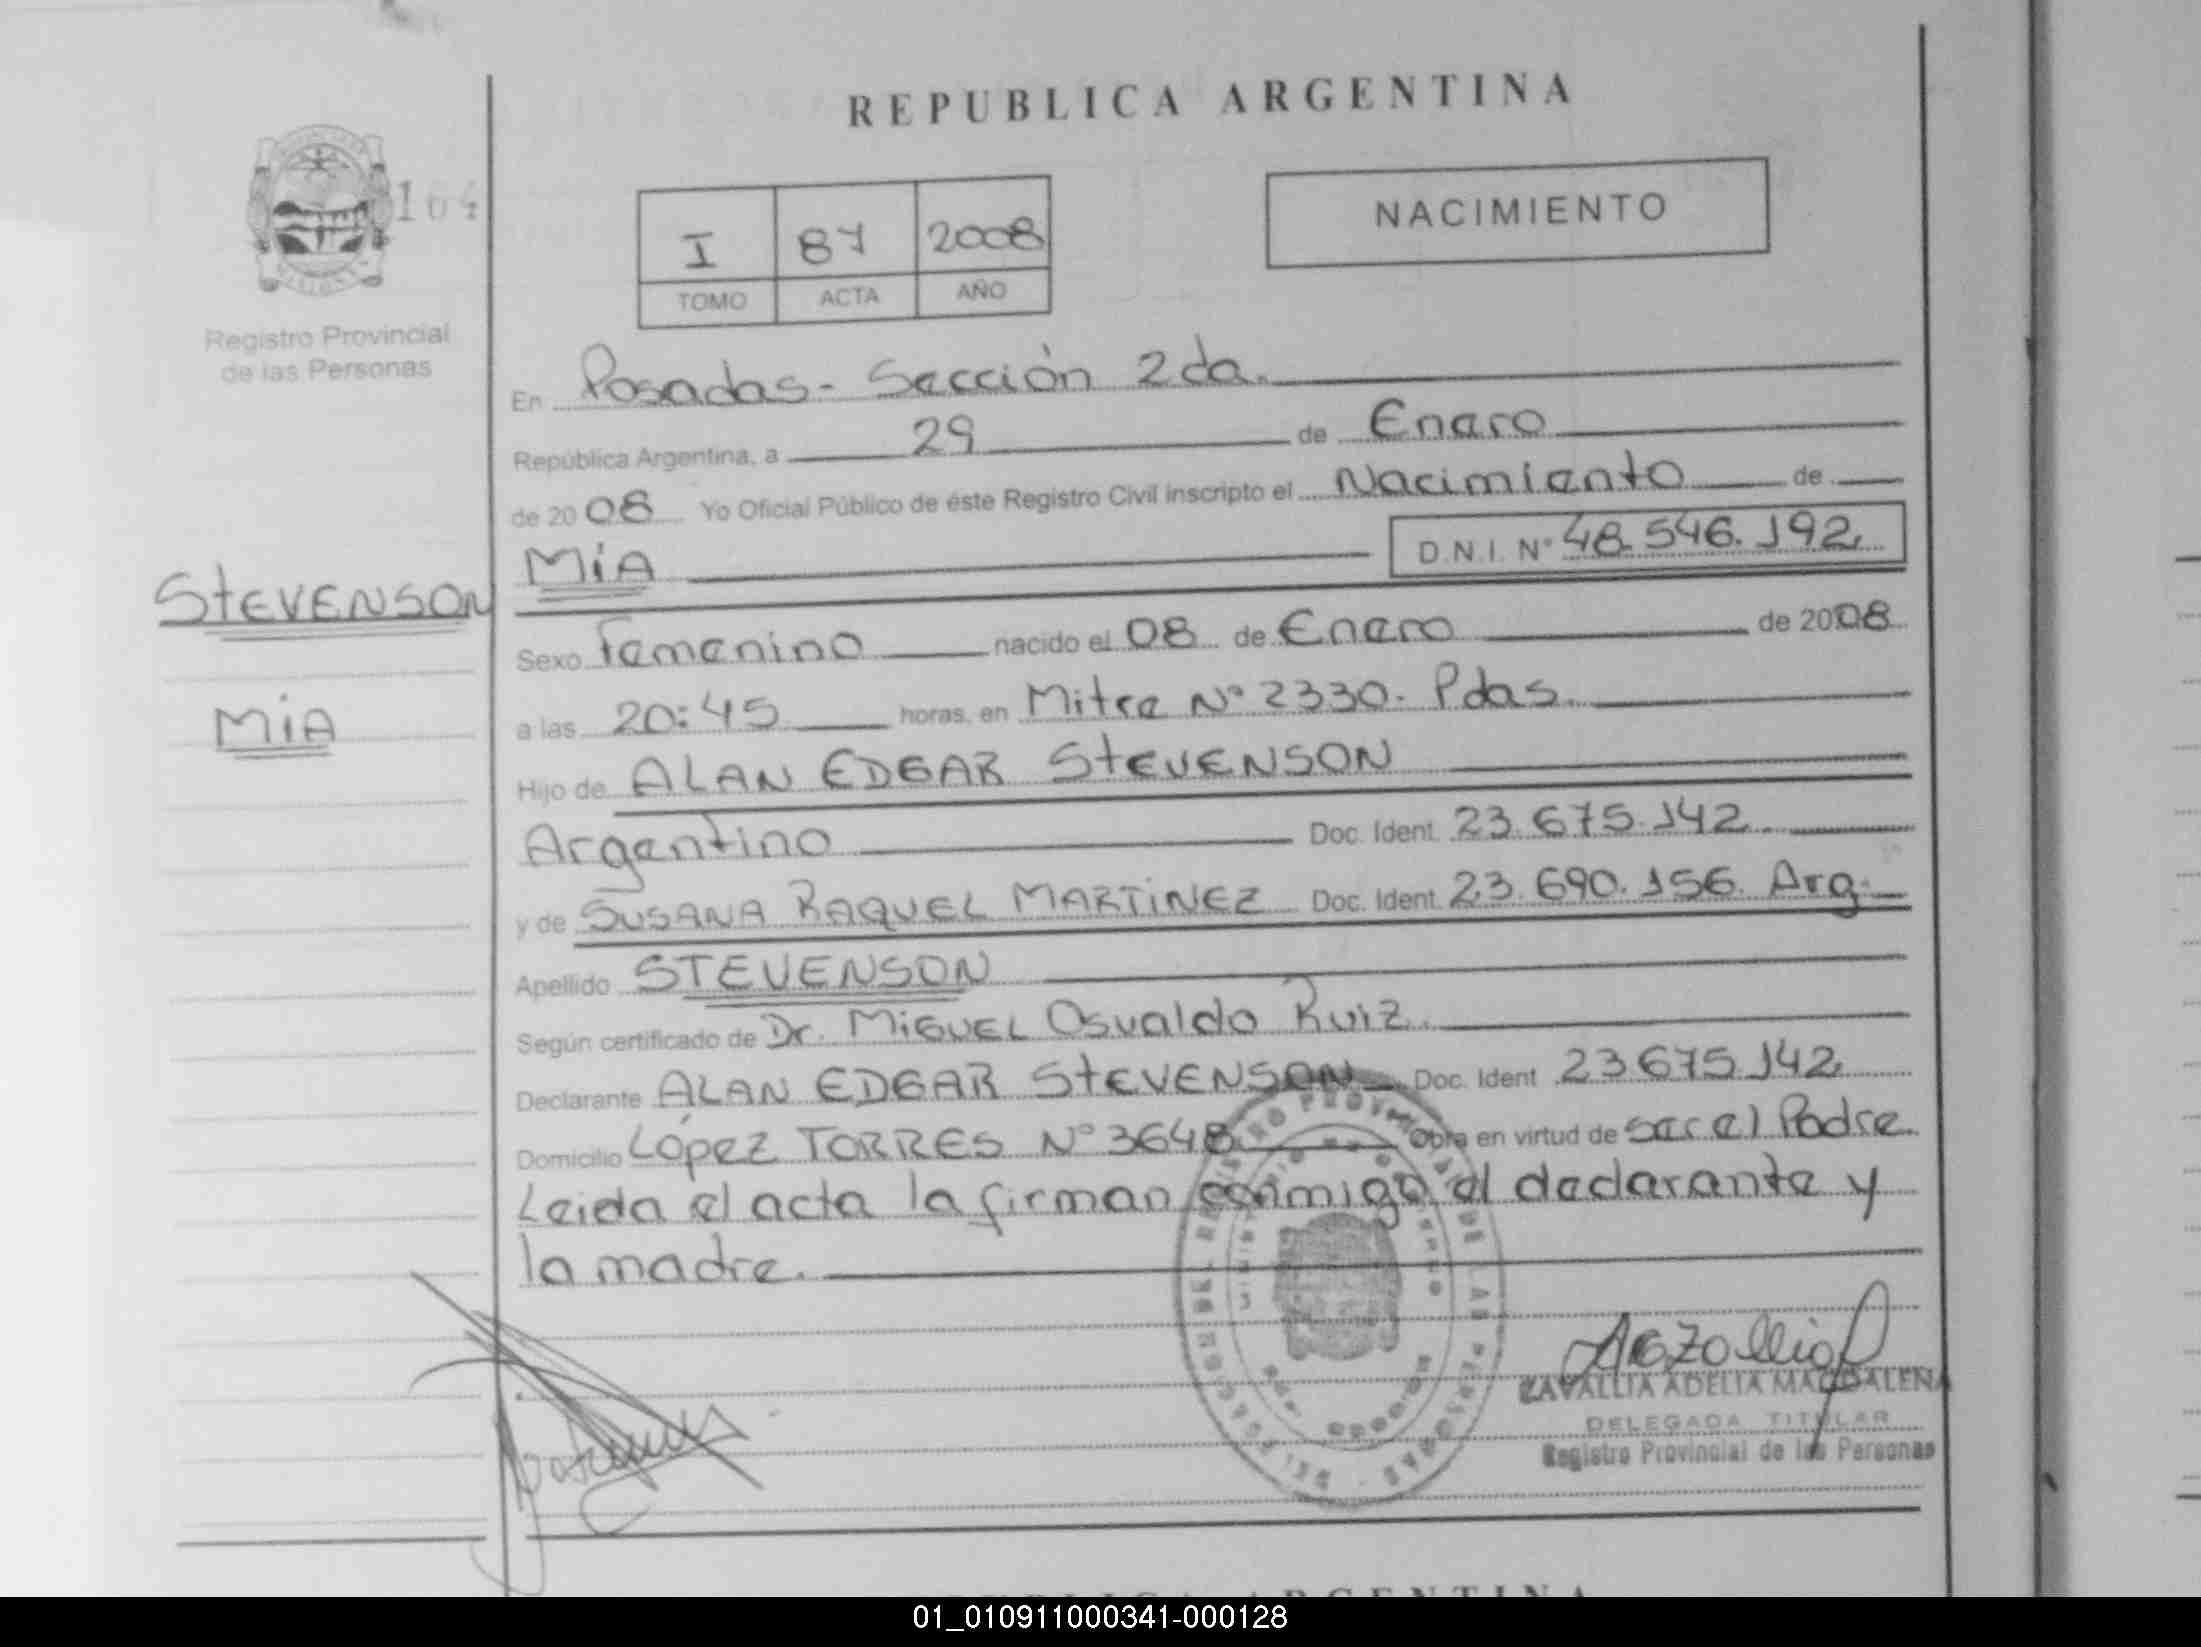 REPUBLICA ARGENTINA
164
I 87 2008
TOMO ACTA AÑO
NACIMIENTO
Registro Provincial
de las Personas
En Posadas - Sección 2da.
República Argentina, a 29 de Enero
de 2008 Yo Oficial Público de éste Registro Civil inscripto el Nacimiento de
MíA D.N.I. N° 48.546.192
STEVENSON
MíA
Sexo Femenino nacido el 08 de Enero de 2008
a las 20:45 horas, en Mitre N° 2330. Pdas.
Hijo de ALAN EDGAR STEVENSON
Argentino Doc. Ident. 23.675.142.
y de SUSANA RAQUEL MARTíNEZ Doc. Ident. 23.690.156. Arg.
Apellido STEVENSON
Según certificado de Dr. MiGUEL Osvaldo Ruiz.
Declarante ALAN EDGAR STEVENSON Doc. Ident 23675.142
Domicilio LópEZ TORRES N° 3648 Obra en virtud de ser el Padre.
Leida el acta la firman conmigo el declarante y
la madre.
ZAVALLIA ADELIA MAGDALENA
DELEGADA TITULAR
Registro Provincial de las Personas
01_010911000341-000128